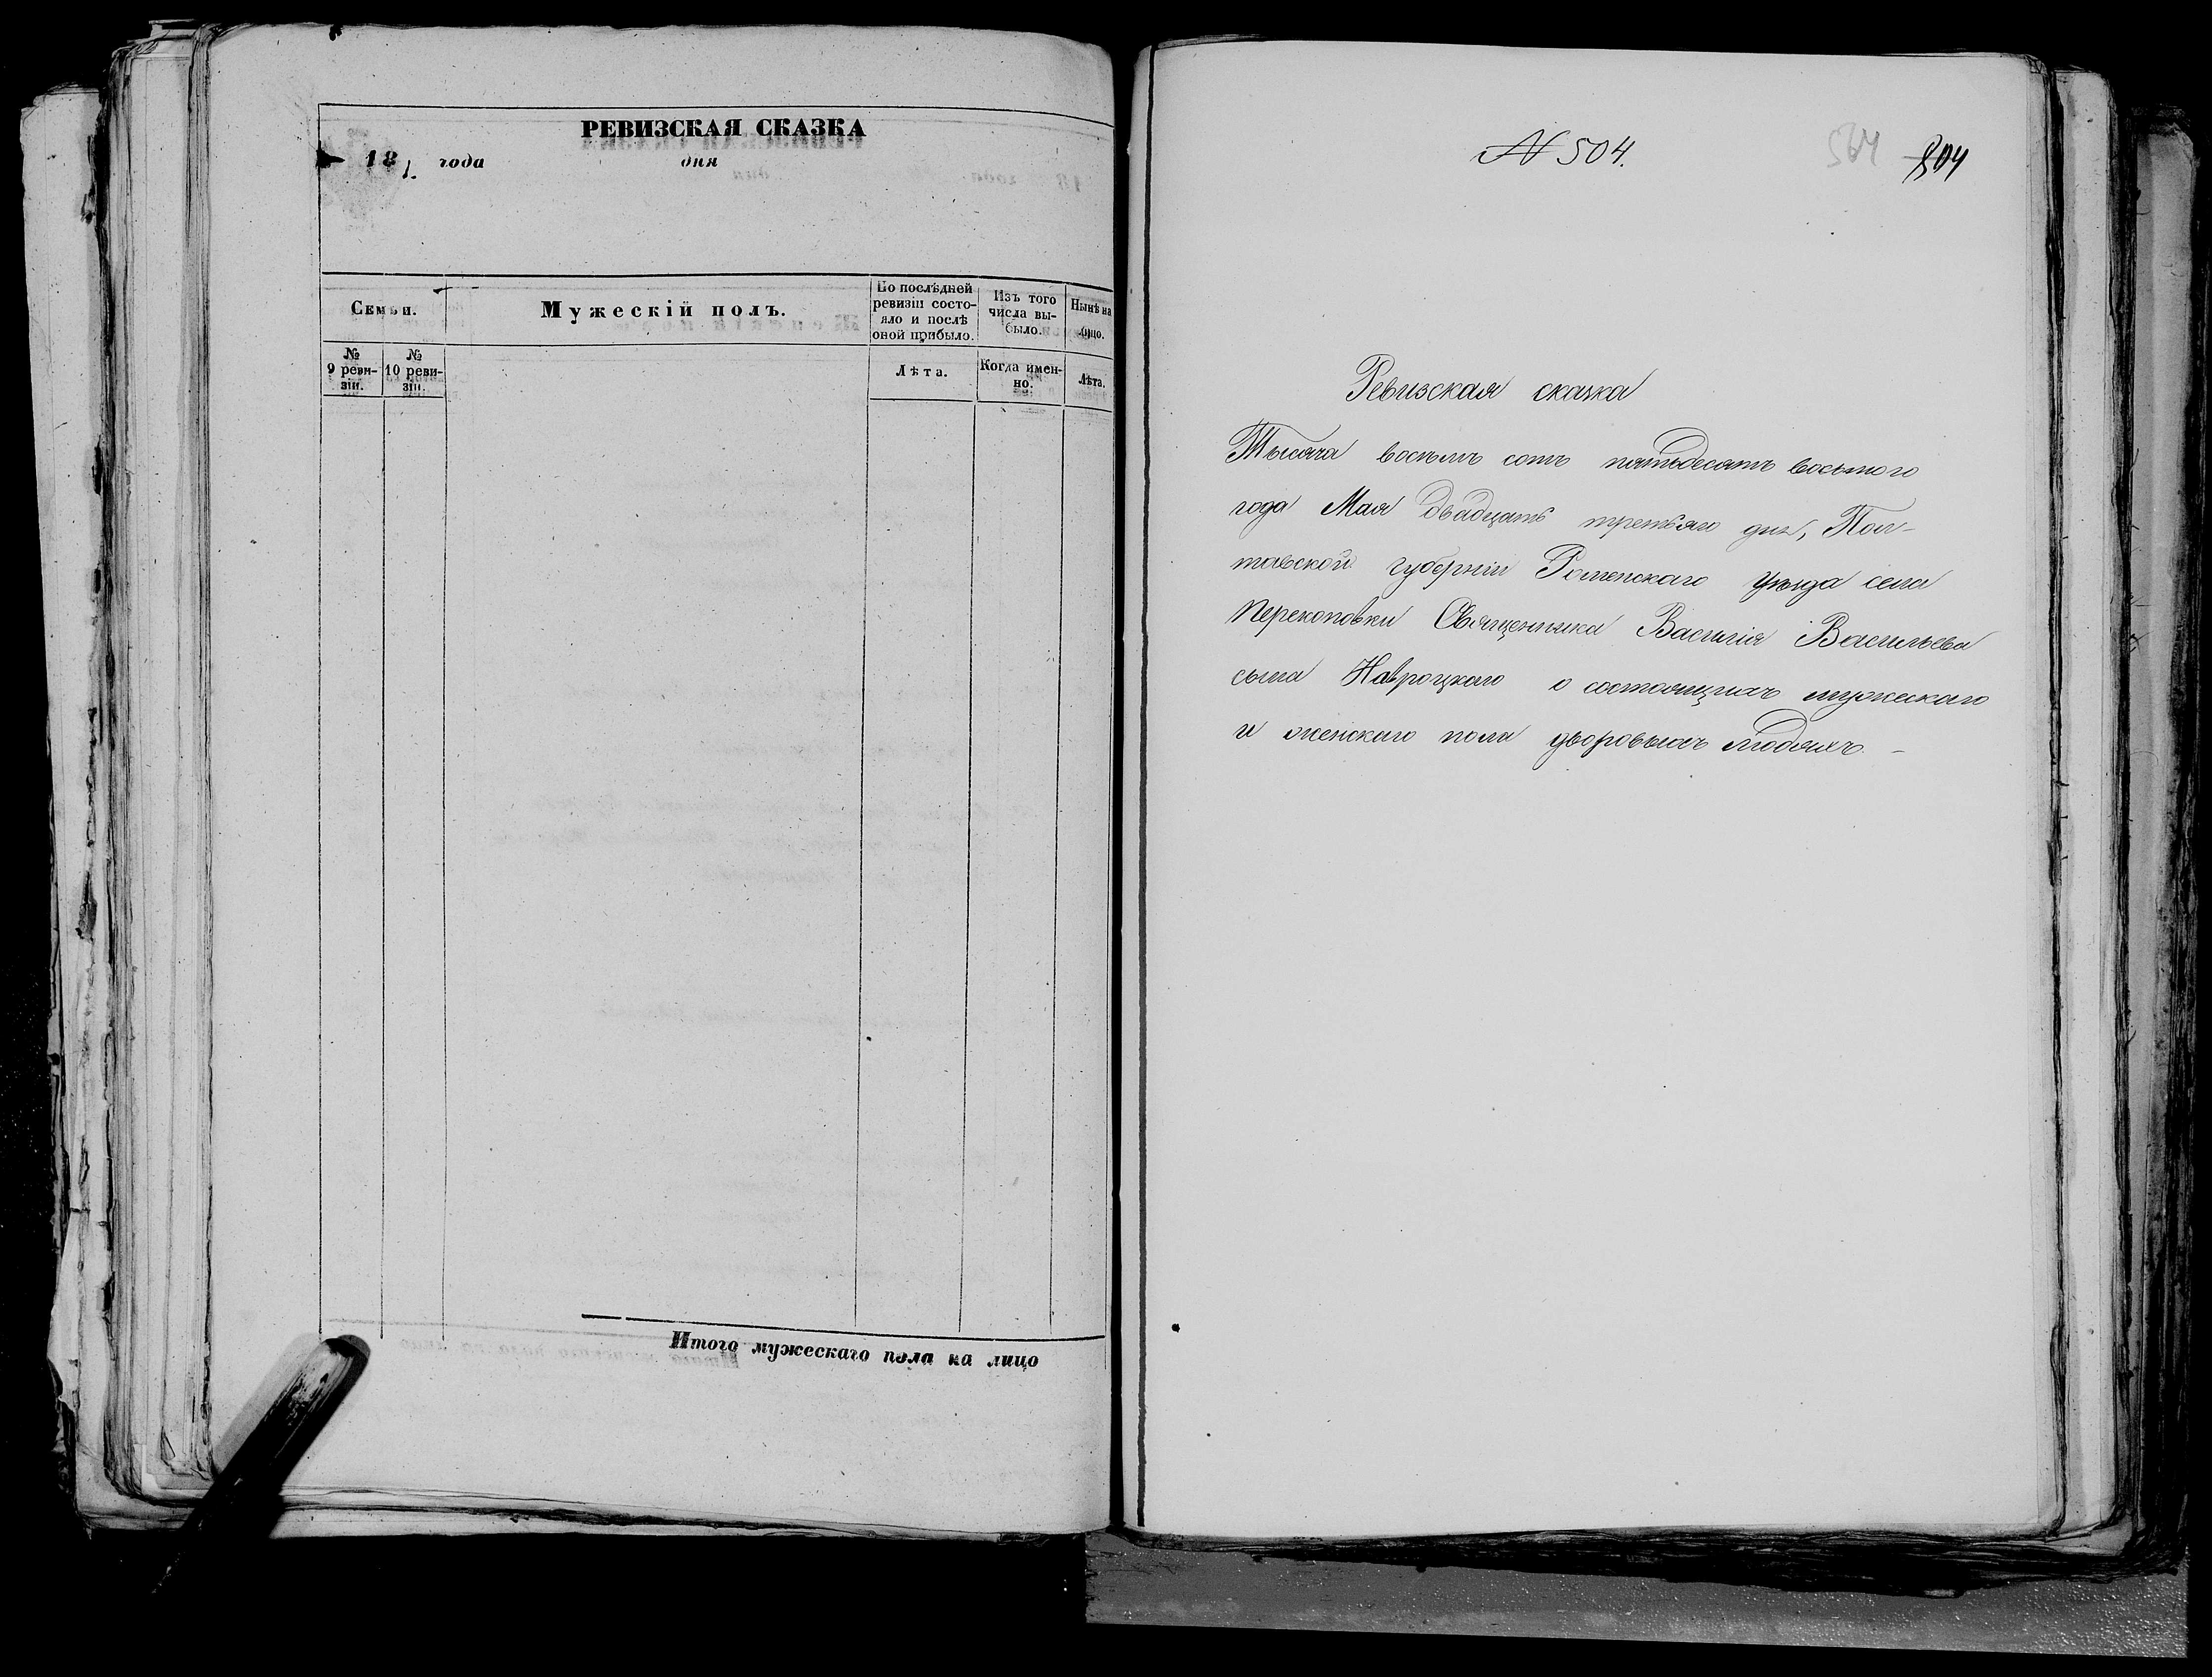 РЕВИЗСКАЯ СКАЗКА
18 года дня
Семьи.
Мужескій полъ.
По послѣдней
ревизіи состо-
яло и послѣ
оной прибыло.
Изъ того
числа вы-
было.
Нынѣ на
лицо.
№
9 реви-
зіи.
№
10 реви-
зіи.
Лѣта.
Когда имен-
но.
Лѣта.
Итого мужескаго пола на лицо
№ 504.
504
Ревизская сказка
Тысяча восемь сотъ пятьдесятъ восьмого
года Мая двадцать третьяго дня, Пол-
тавской губерніи Роменскаго уѣзда села
Перекоповки Священника Василія Васильева
сына Навроцкаго о состоящихъ мужескаго
и женскаго пола дворовыхъ людяхъ. –